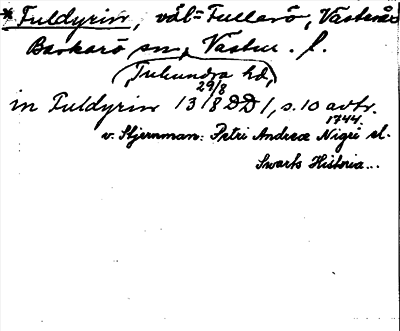 * Fuldyrin, väl = Fullerö, Västerås
Barkarö sn, Västm. l.
(Tuhundra hd,)
in Fuldyrin 13 29/8 18 DD 1, s. 10 avtr.
1744.
v. Stjernman: Petri Andreæ Nigri el.
Swarts Historia...